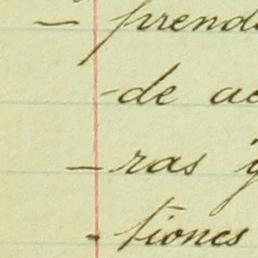 — prend
-de ac
— ras y
- tiones